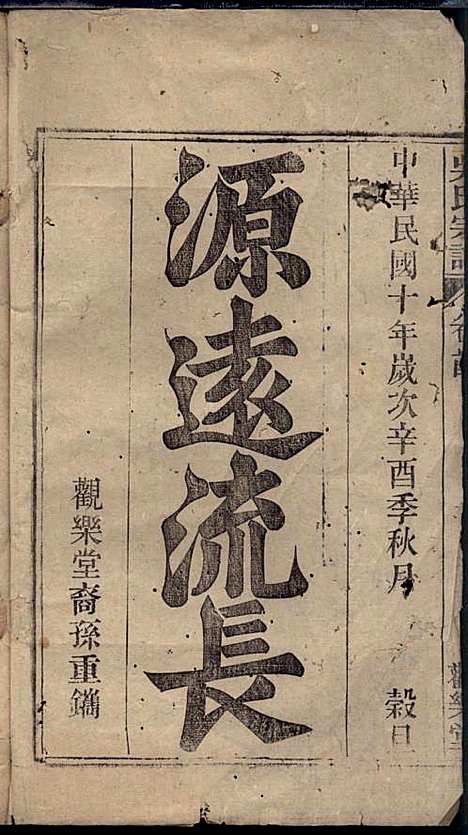 吳氏宗譜 卷首 觀樂堂
中華民國十年歲次辛酉季秋月 穀旦
源遠流長
觀樂堂裔孫重鐫